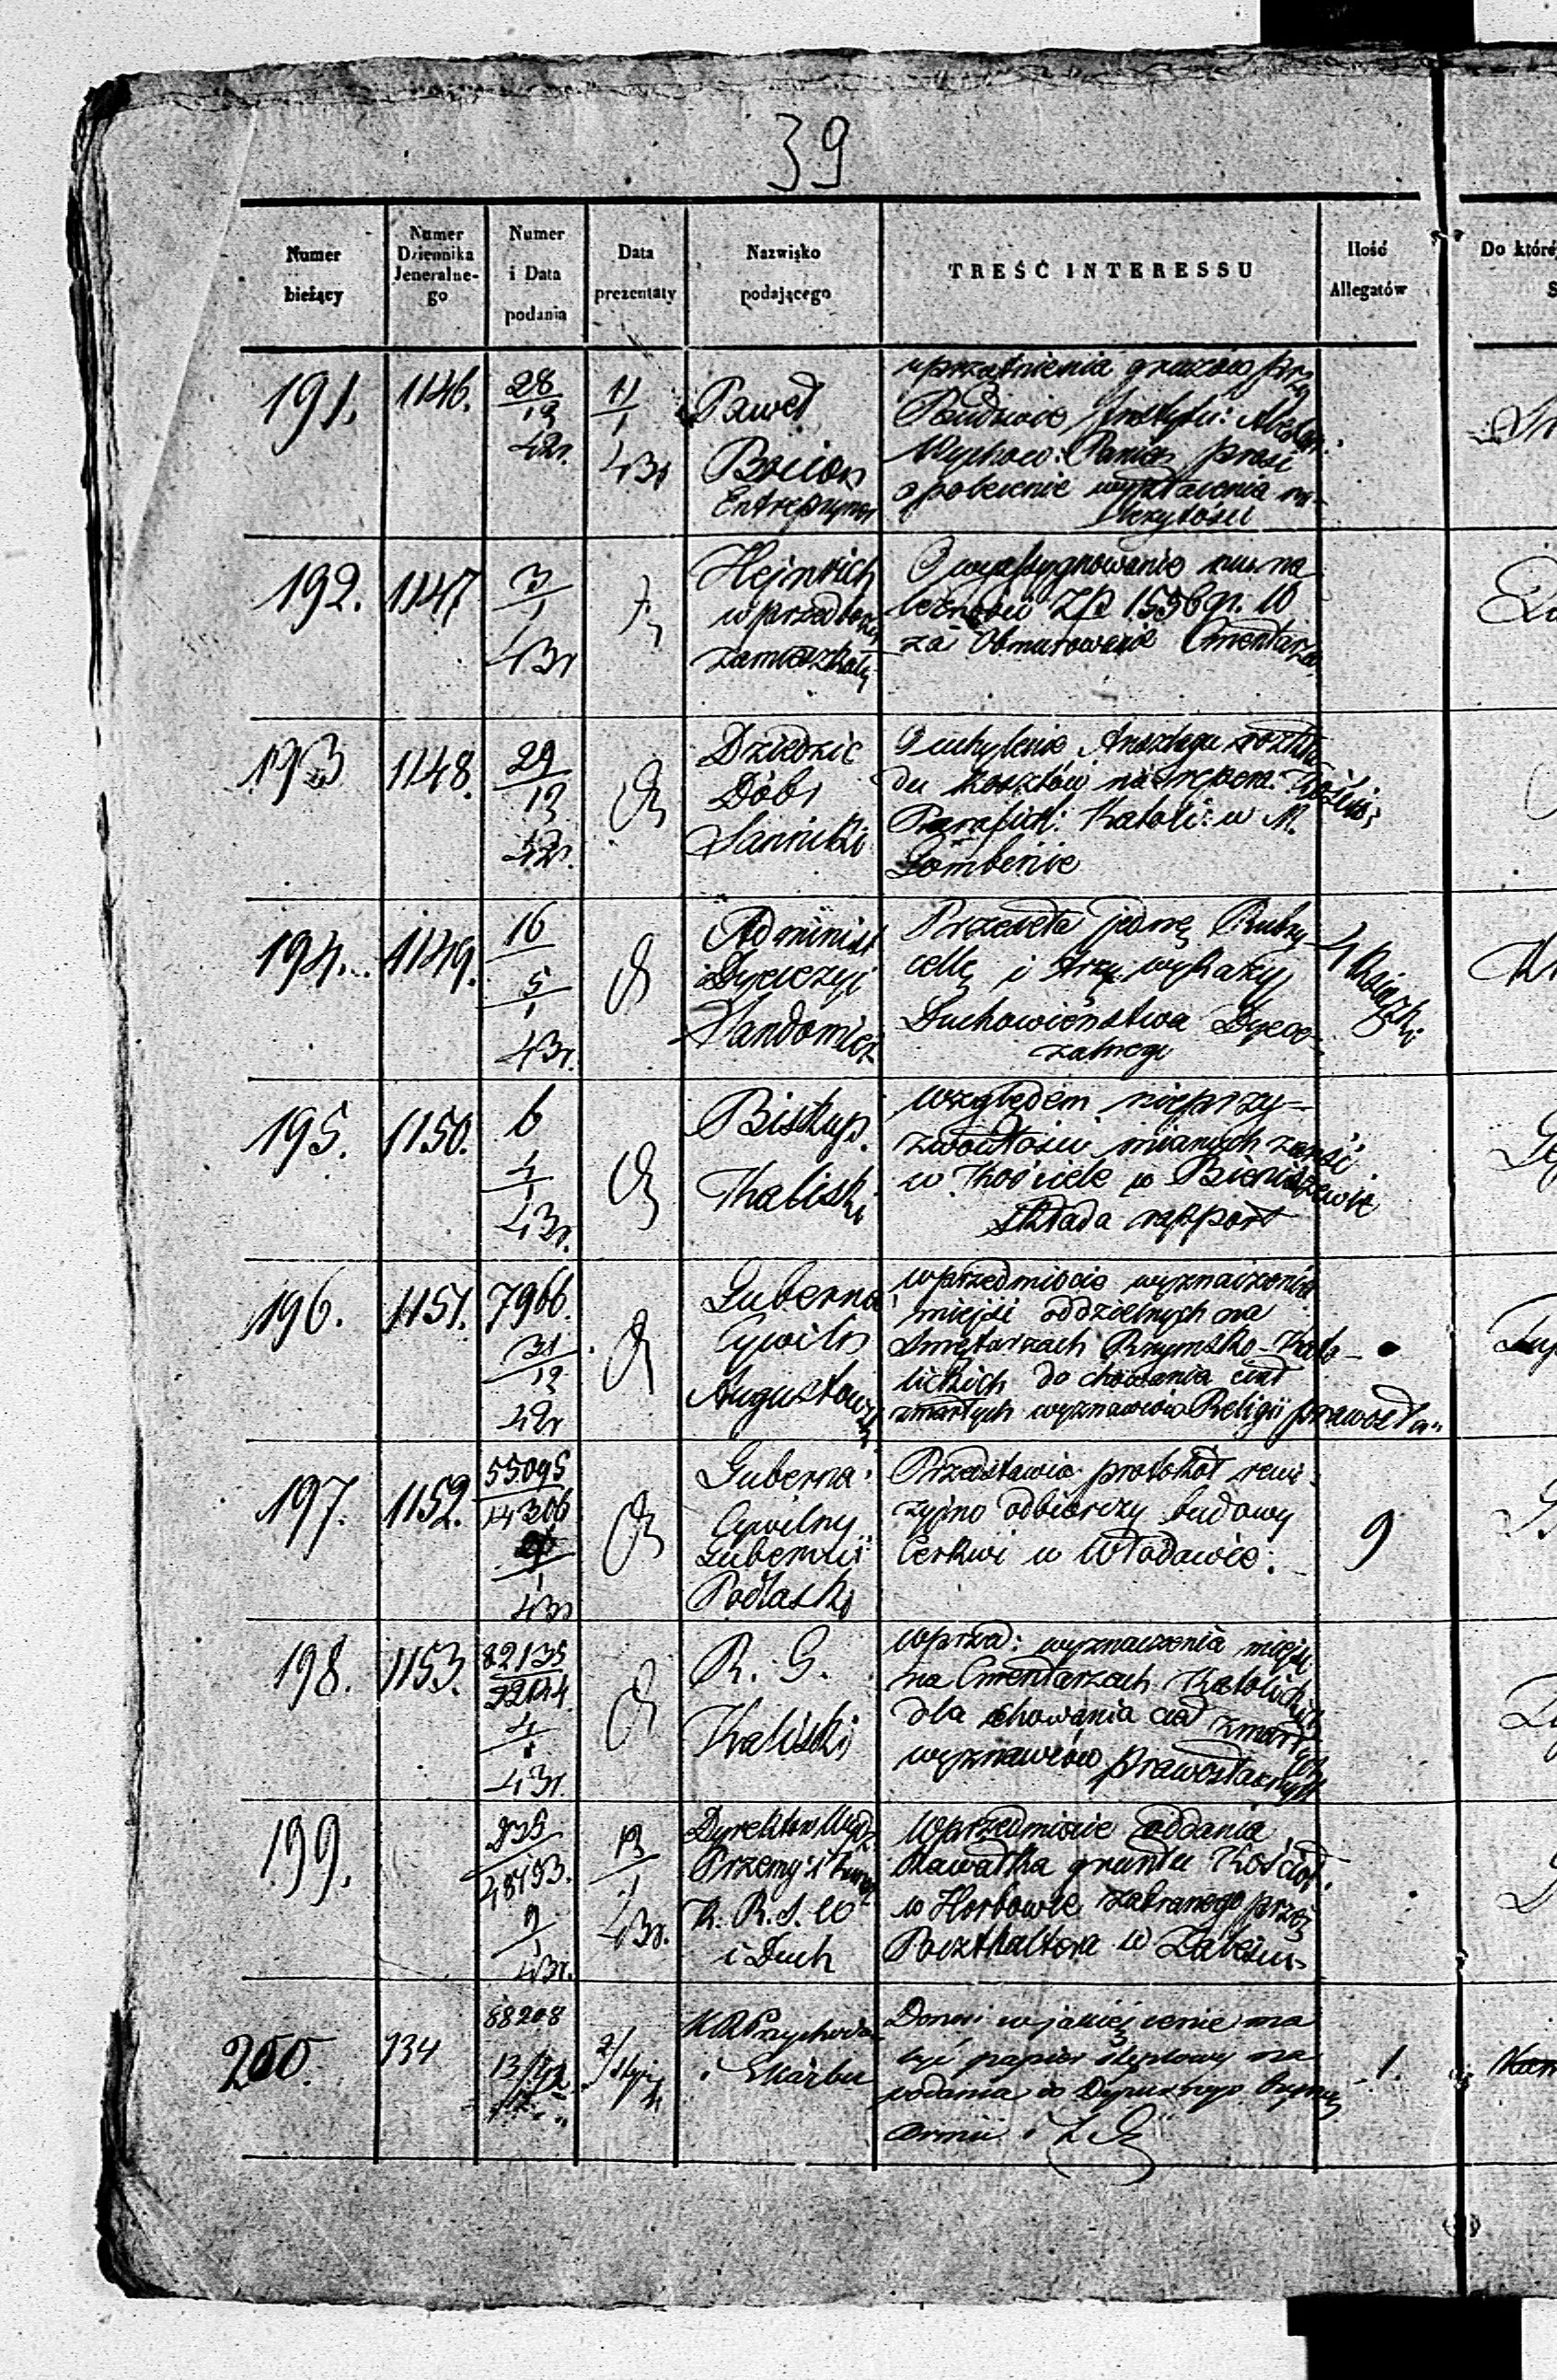 39
Numer bieżący
Numer Dziennika Jeneralne-go
Numer i Data podania
Data prezentaty
Nazwisko podającego
TREŚĆ INTERESSU
Ilość Allegatów
Do które
191. 1146. 28/12 42r. 11/1 43r
Paweł
Entreprym
uprzątnienia gruzów przy
Wychow: Panien prosi
o polecenie wypłacenia na-
leżytości
192. 1147 3/1 43r
Hejnrich
zamieszkały
O wyassygnowanie sum na
leżności Zp 1556 gr. 10
za Obmurowanie Cmentarza
193 1148. 29/12 42r.
Dziedzic
Dóbr
Sanniki
O uchylenie Anszlagu rozkła
du kosztów na repera: Kościo:
Parafial: Katoli: w M.
Gombinie
194. 1149. 16 5/1 43r.
Administ
Dyecezyi
Sandomier
Przesyła jedną Rubry
cellę i trzy wykazy
Duchowieństwa Dyece-
zalnego
4 Książki
195. 1150. 6 4/1 43r.
Biskup.
Kaliski
względem nieprzy=
zwoitości mianych zajść
w Kościele w Bieniszewie
składa rapport
196. 1151. 7966. 31/12 42r
Guberna
Cywiln
Augustows
w przedmiocie wyznaczenia
miejsc oddzielnych na
Smętarzach Rzymsko-Kato-
lickich do chowania ciał
zmarłych wyznawców Religii prawosła-
197. 1152. 55095/14306 43r
Guberna
Cywilny
Gubernii
Podlaski
Przedstawia protokół rewi-
zyjno odbiorczy budowy
Cerkwi w Włodawie.
9
198. 1153. 82135 4/1 43r.
R. G.
Kaliski
w prze: wyznaczenia miejsc
na Cmentarzach Katolickich
dla chowania ciał zmarłych
wyznawców prawosławnych
199. 235/48193. 2/1 43r. 12/1 43r.
Dyrektor Wydz
Przemy: i Kunsz
K. R. S. W
i Duch
W przedmiocie oddania
kawałka gruntu Kościoł.
w Horbowie zabranego przez
Poczthaltera w Zalesiu
200. 134 88208
2/Stycz
K R Przychodów
i Skarbu
Donosi w jakiej cenie ma
być papier stęplowy na
podania do
Armii
1.